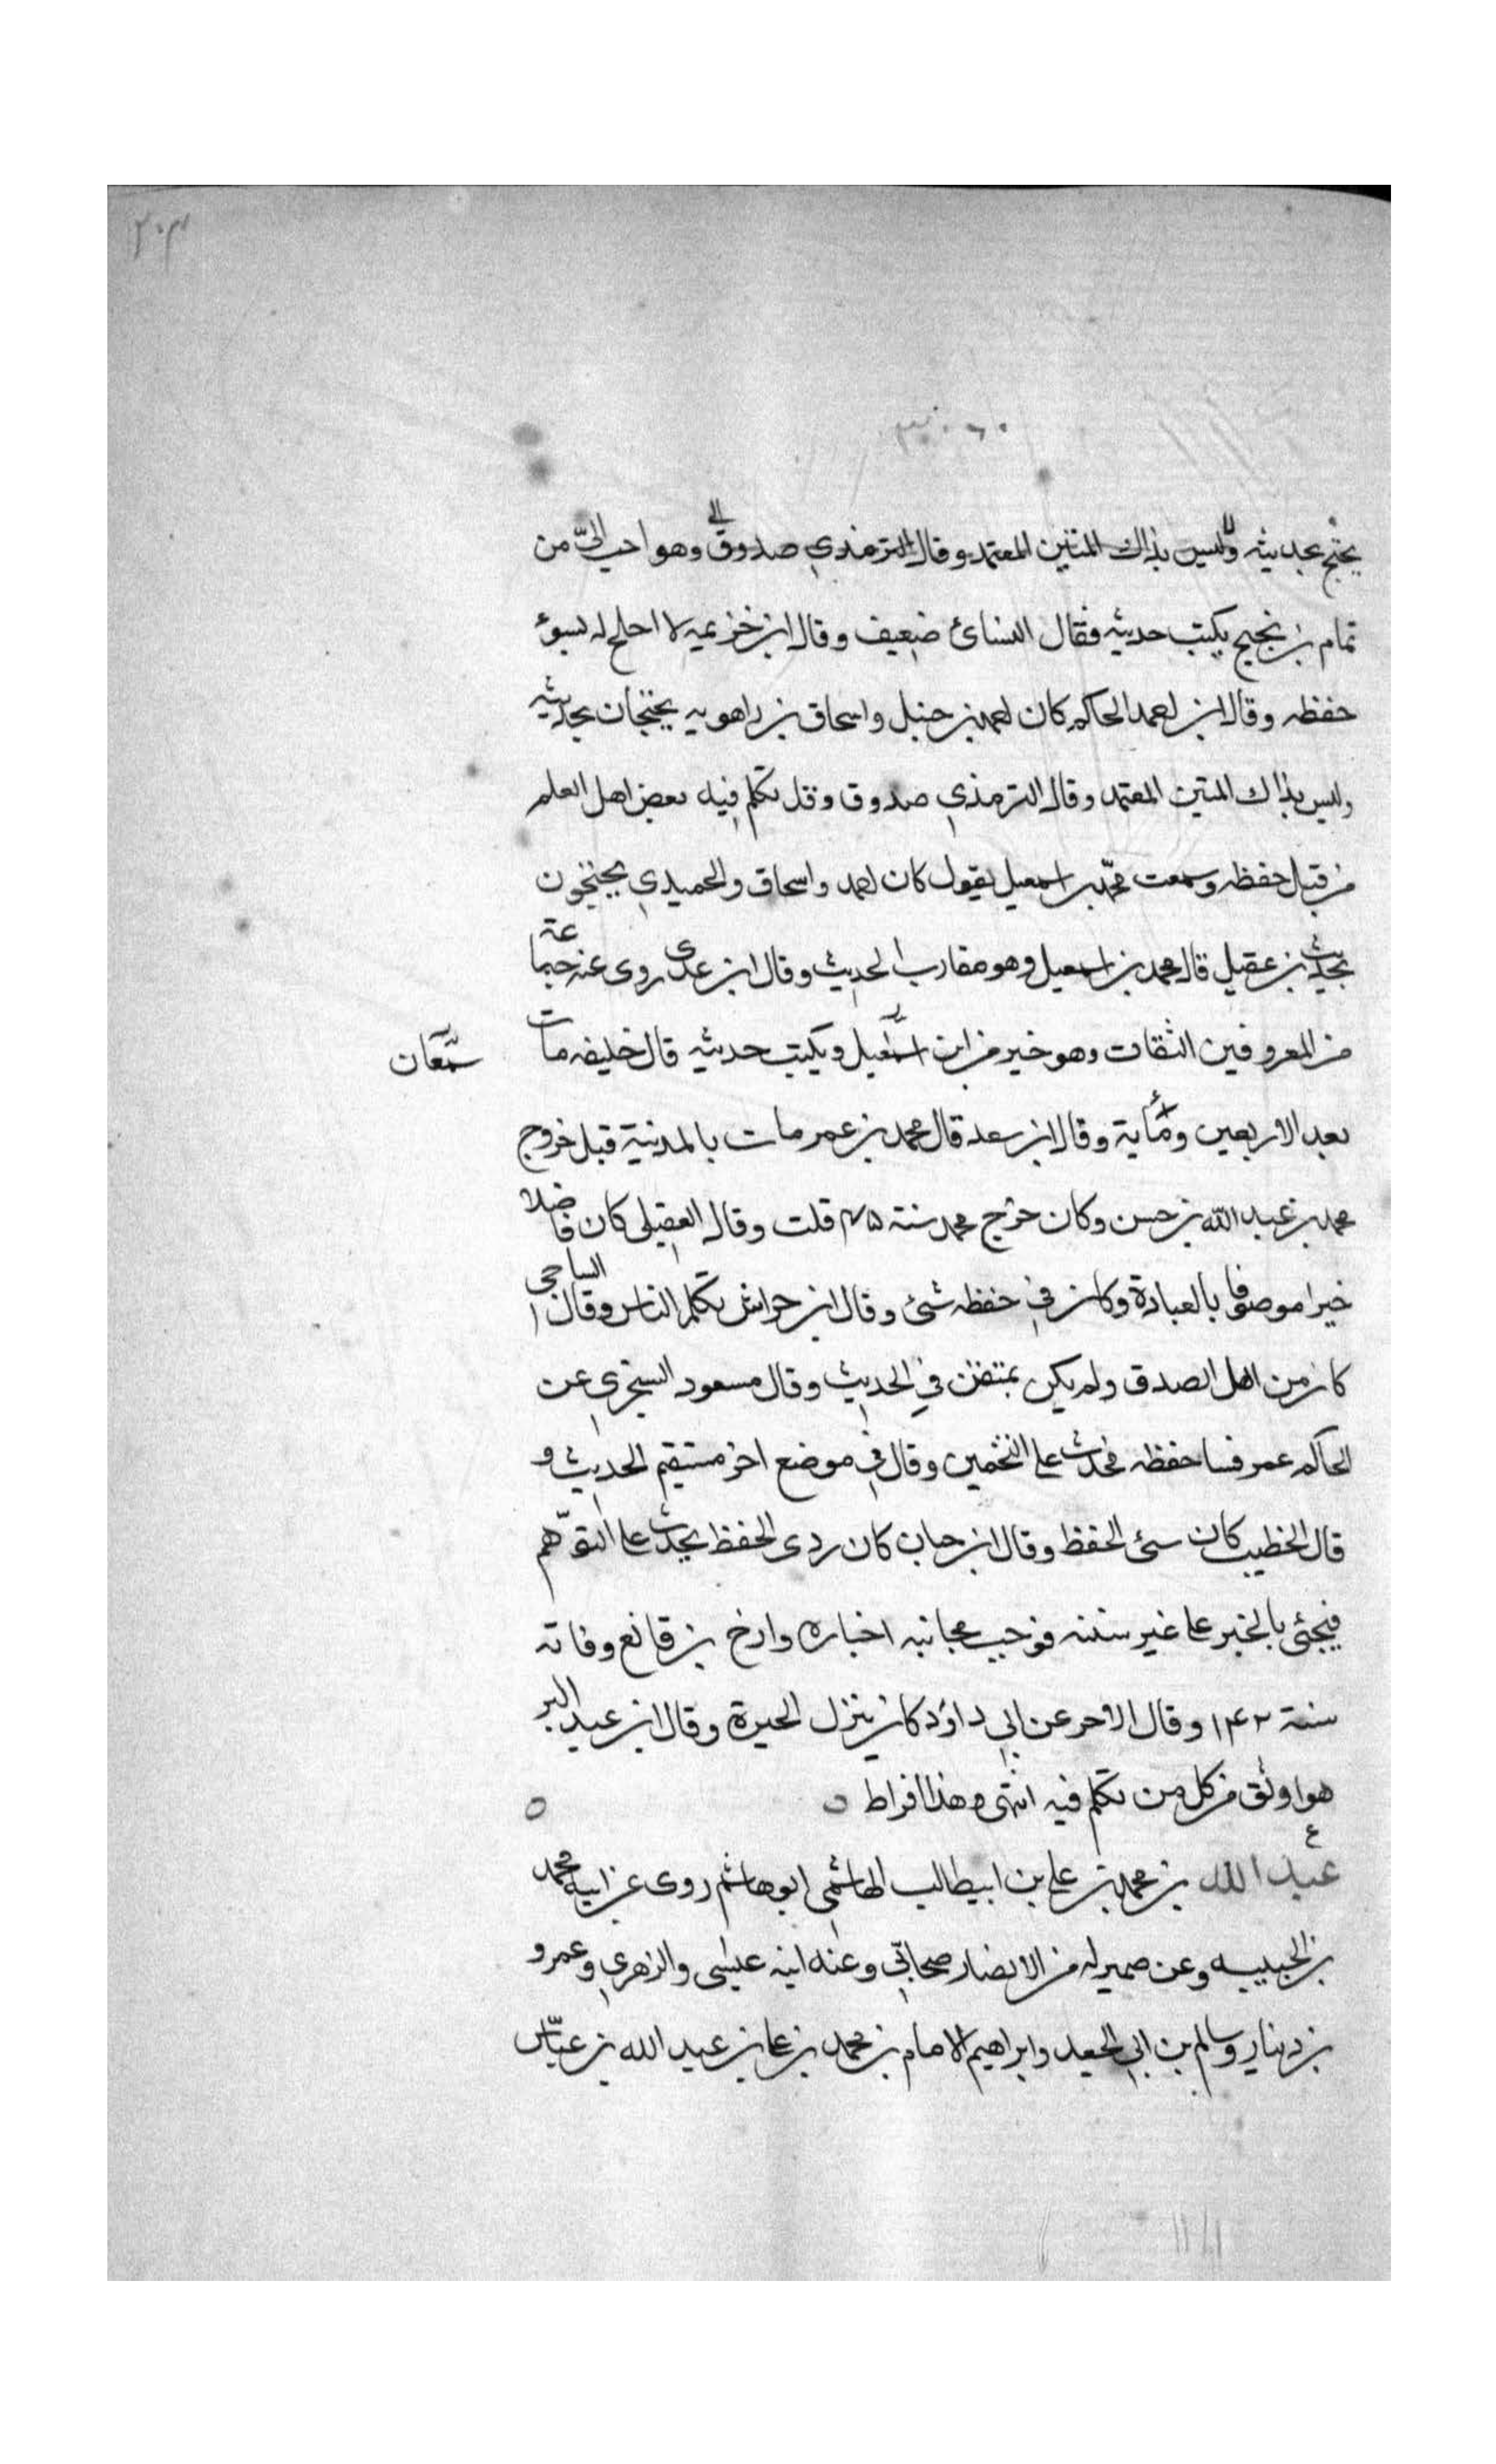 ٢٠٣
يحتج بحديثه وليس بذاك المتين المعتمد وقال الترمذي صدوق وهو احب اليّ من
تمام بن نجيح يكتب حديثه فقال النسائ ضعيف وقال ابن خزيمه لا احتج له لسوء
حفظه وقال ابن احمد الحاكم كان احمد بن حنبل واسحاق بن راهويه يحتجان بحديثه
وليس بذاك المتين المعتمد وقال الترمذي صدوق وقد تكلم فيه بعض اهل العلم
من قبل حفظه وسمعت محمد بن اسمعيل يقول كان احمد واسحاق والحميدي يحتجون
بحديث بن عقيل قال محمد بن اسمعيل وهو مقارب الحديث وقال ابن عدى روى عنه جماعة
من المعروفين الثقات وهو خير من ابن اسمعيل ويكتب حديثه قال خليفه مات
سمّعان
بعد الاربعين ومأية وقال ابن سعد قال محمد بن عمر مات بالمدنية قبل خروج
محمد بن عبد الله بن حسن وكان خرج محمد سنة ۴۵ قلت وقال العقيلى كان فاضلا
خيرا موصوفا بالعبادة وكان في حفظه شئ وقال ابن حواش تكلم الناس وقال الساجى
كان من اهل الصدق ولم يكن بمتقن في الحديث وقال مسعود السجزي عن
الحاكم عمر فسا حفظه فحدث على التخمين وقال في موضع اخر مستقيم الحديث و
قال الخطيب كان سئ الحفظ وقال ابن حبان كان ردى الحفظ يحدث على التوّهم
فيجئ بالخبر على غير سننه فوجب مجانبه اخباره وارخ بن قانع وفاته
سنة ۱۴۲ وقال الاجر عن ابي داؤد كان ينزل الحيرة وقال ابن عبد البر
هو اوثق من كل من تكلم فيه انتهى وهذا افراط
ع
عبد الله بن محمد بن علي بن ابيطالب الهاشمى ابو هاشم روى عن ابيه محمد
بن الحبيبه وعن صهر له من الانصار صحابّي وعنه ابنه عيسى والزهري وعمرو
بن دينار وسالم بن ابي الجعد وابراهيم الامام بن محمد بن على بن عبد الله بن عبّاس